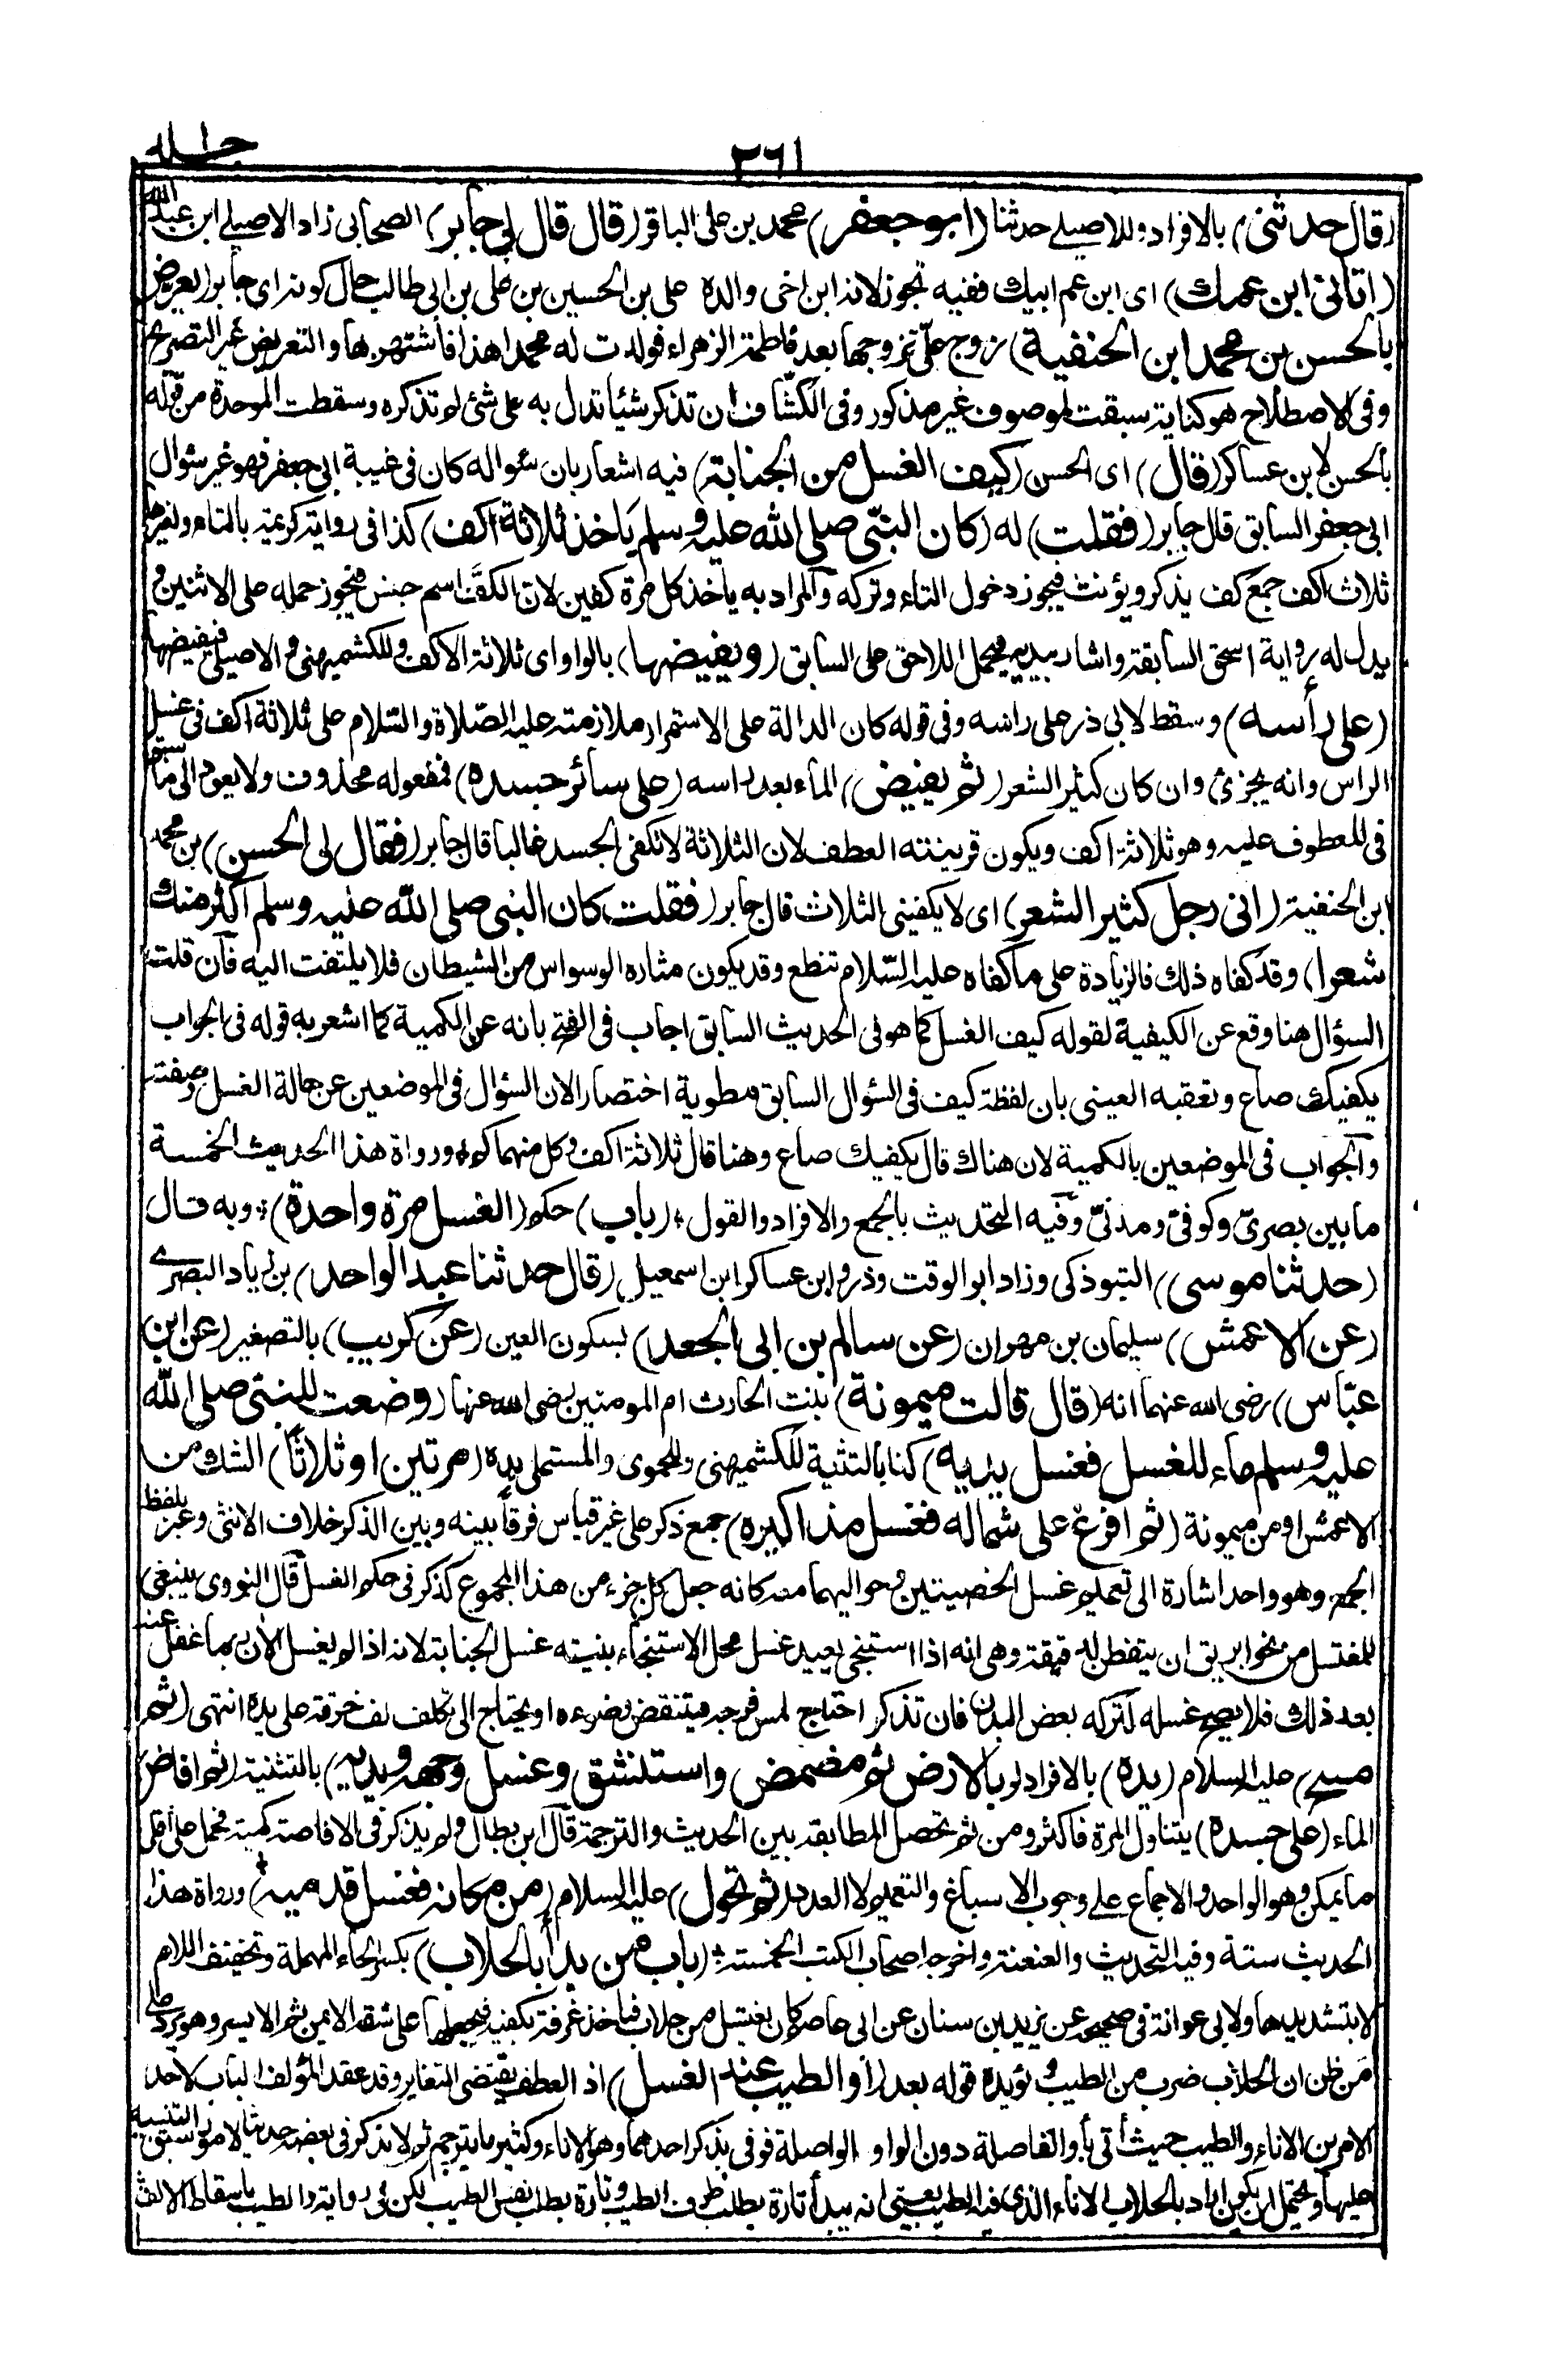 ٢٦١ جلد ا
(قال حدثنى) بالافراد وللاصيلى حدثنا (ابو جعفر) محمد بن على الباقر (قال قال لى جابر) الصحابى زاد الاصيلى ابن عبد الله
(اتانى ابن عمك) اى ابن عم ابيك ففيه تجوز لانه ابن اخى والده على بن الحسين بن على بن ابى طالب حال كونه اى جابر (يعرض
بالحسن بن محمد ابن الحنفية) زوج علىّ تزوجها بعد فاطمة الزهراء فولدت له محمدا هذا فأشتهر بها والتعريض غير التصريح
وفى الاصطلاح هو كناية سبقت لموصوف غير مذكور وفى الكشّاف ان تذكر شيئا تدل به على شئ لم تذكره وسقطت الموحدة من قوله
بالحسن لابن عساكر (قال) اى الحسن (كيف الغسل من الجنابة) فيه اشعار بان سؤاله كان فى غيبة ابى جعفر فهو غير سؤال
ابى جعفر السابق قال جابر (فقلت) له (كان النبّى صلى الله عليه وسلم يأخذ ثلاثة اكف) كذا فى رواية كريمة بالتاء ولغيرها
ثلاث اكف جمع كف يذكر ويؤنث فيجوز دخول التاء وتركه والمراد به يأخذ كل مرة كفين لان الكفّ اسم جنس فيجوز حمله على الاثنين و
يدل له رواية اسحق السابقة واشار بيديه فيحمل اللاحق على السابق (ويفيضها) بالواو اى ثلاثة الاكف وللكشميهنى والاصيلى فيفيضها
(على رأسه) وسقط لابى ذر على راسه وفى قوله كان الدالة على الاستمرار ملازمته عليه الصّلاة والسّلام على ثلاثة اكف فى غسل
الراس وانه يجزئ وان كان كثير الشعر (ثم يفيض) الماء بعد راسه (على سائر جسده) فمفعوله محذوف ولا يعود الى ما سبق
فى المعطوف عليه وهو ثلاثة اكف ويكون قرينته العطف لان الثلاثة لا تكفى الجسد غالبا قال جابر (فقال لى الحسن) بن محمد
ابن الحنفية (انى رجل كثير الشعر) اى لا يكفينى الثلاث قال جابر (فقلت كان النبى صلى الله عليه وسلم اكثر منك
شعرا) وقد كفاه ذلك فالزيادة على ما كفاه عليه السّلام تنطع وقد يكون مثاره الوسواس من الشيطان فلا يلتفت اليه فان قلت
السؤال هنا وقع عن الكيفية لقوله كيف الغسل كما هو فى الحديث السابق اجاب فى الفتح بانه عن الكمية كما اشعر به قوله فى الجواب
يكفيك صاع وتعقبه العينى بان لفظة كيف فى السؤال السابق مطوية اختصارا لان السؤال فى الموضعين عن حالة الغسل وصفته
والجواب فى الموضعين بالكمية لان هناك قال يكفيك صاع وهنا قال ثلاثة اكف وكل منهما كم ورواة هذا الحديث الخمسة
ما بين بصرىّ وكوفىّ ومدنىّ وفيه التحديث بالجمع والافراد والقول (باب) حكم (الغسل مرة واحدة) وبه قال
(حدثنا موسى) التبوذكى وزاد ابو الوقت وذر وابن عساكر ابن اسمعيل (قال حدثنا عبد الواحد) بن زياد البصرى
(عن الاعمش) سليمان بن مهران (عن سالم بن ابى الجعد) بسكون العين (عن كريب) بالتصغير (عن ابن
عبّاس) رضى الله عنهما انه (قال قالت ميمونة) بنت الحارث ام المومنين رضى الله عنها (وضعت للنبى صلى الله
عليه وسلم ماء للغسل فغسل يديه) كذا بالتثنية للكشميهنى وللحموى والمستملى يده (مرتين او ثلاثا) الشك من
الاعمش او من ميمونة (ثم افرغ على شماله فغسل مذاكيره) جمع ذكر على غير قياس فرقا بينه وبين الذكر خلاف الانثى وعبر بلفظ
الجمع وهو واحد اشارة الى تعميم غسل الخصيتين وحواليهما معه كانه جعل كل جزء من هذا المجموع كذكر فى حكم الغسل قال النووى ينبغى
للمغتسل من نحو ابريق ان يتفطن لدقيقة وهى انه اذا استنجى يعيد غسل محل الاستنجاء بنية غسل الجنابة لانه اذا لم يغسل الآن ربما غفل عنه
بعد ذلك فلا يصح غسله لتركه بعض البدن فان تذكر احتاج لمس فرجه فيتنقض وضوءه او يحتاج الى تكلف لف خرقة على يده انتهى (ثم
مسح) عليه السلام (يده) بالافراد (بالارض ثم مضمض واستنشق وغسل وجهه ويديه) بالتثنية (ثم افاض)
الماء (على جسده) يتناول المرة فاكثر ومن ثم تحصل المطابقة بين الحديث والترجمة قال ابن بطال ولم يذكر فى الافاضة كمية فحمل على اقل
ما يمكن وهو الواحد والاجماع على وجوب الاسباغ والتعميم لا العدد (ثم تحول) عليه السلام (من مكانه فغسل قدميه) ورواة هذا
الحديث ستة وفيه التحديث والعنعنة واخرجه اصحاب الكتب الخمسة (باب من بدأ بالحلاب) بكسر الحاء المهملة وتخفيف اللام
لا بتشديدها ولابى عوانة فى صحيحه عن يزيد بن سنان عن ابى عاصم كان يغتسل من حلاب فيأخذ غرفة بكفيه فيجعلها على شقه الايمن ثم الايسر وهو يرد على
من ظن ان الحلاب ضرب من الطيب ويؤيده قوله بعد (أو الطيب عند الغسل) اذ العطف يقتضى التغاير وقد عقد المؤلف الباب لاحد
الامرين الاناء والطيب حيث أتى بأو الفاصلة دون الواو الواصلة فوفى بذكر احدهما وهو الاناء وكثير ما يترجم ثم لا يذكر فى بعضه حديثا لامور سبق التنبيه
عليها ويحتمل ان يكون اراد بالحلاب الاناء الذى فيه الطيب يعنى انه يبدأ تارة بطلب ظرف الطيب وتارة بطلب نفس الطيب لكن فى رواية والطيب باسقاط الالف